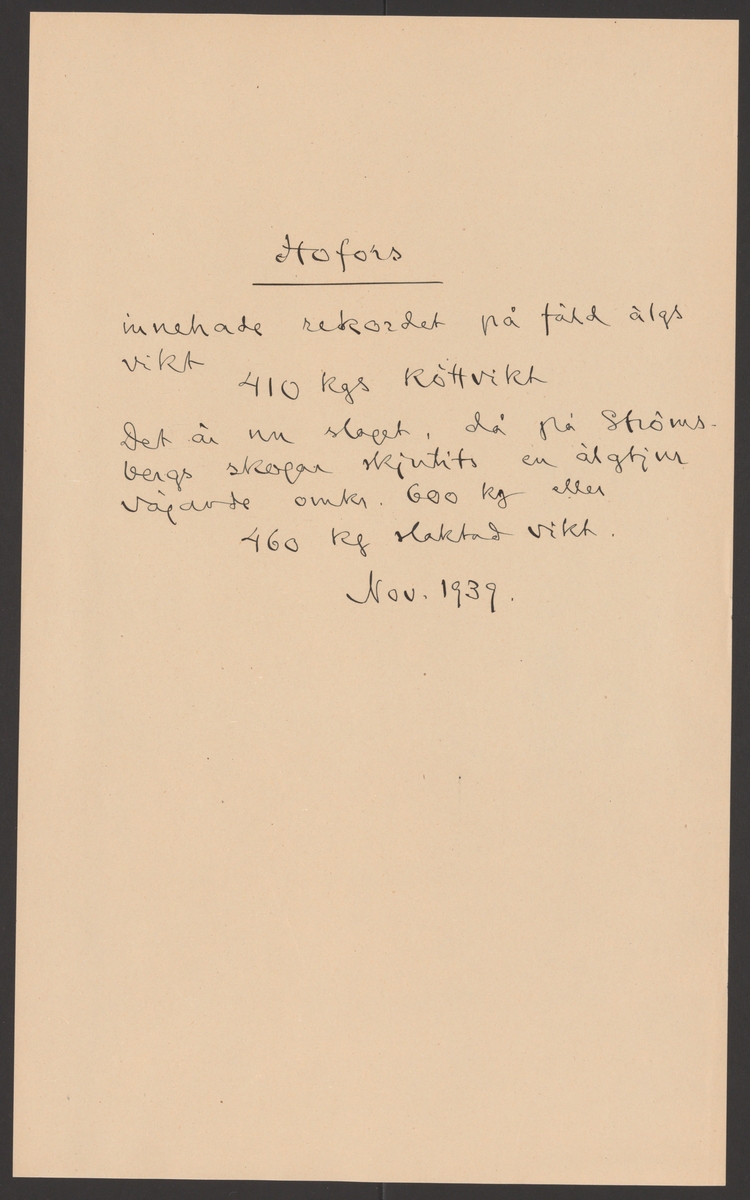 Hofors
innehade rekordet på fäld älgs
vikt
410 kgs köttvikt
Det är nu slaget, då på Ströms-
bergs skogar skjutits en älgtjur
vägande omkr. 600 kg eller
460 kg slaktad vikt.
Nov. 1939.